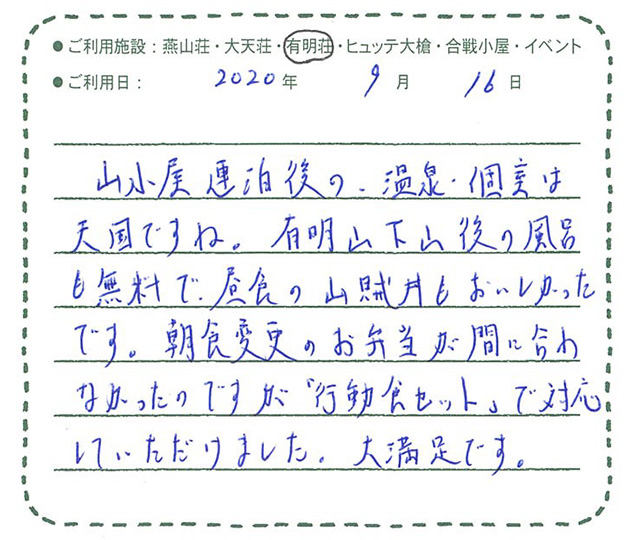 ●ご利用施設：燕山荘・大天荘・有明荘・ヒュッテ大槍・合戦小屋・イベント
●ご利用日： 2020年 9月 16日
山小屋連泊後の、温泉・個室は
天国ですね。有明山下山後の風呂
も無料で、昼食の山賊丼もおいしかった
です。朝食変更のお弁当が間に合わ
なかったのですが「行動食セット」で対応
していただけました。大満足です。